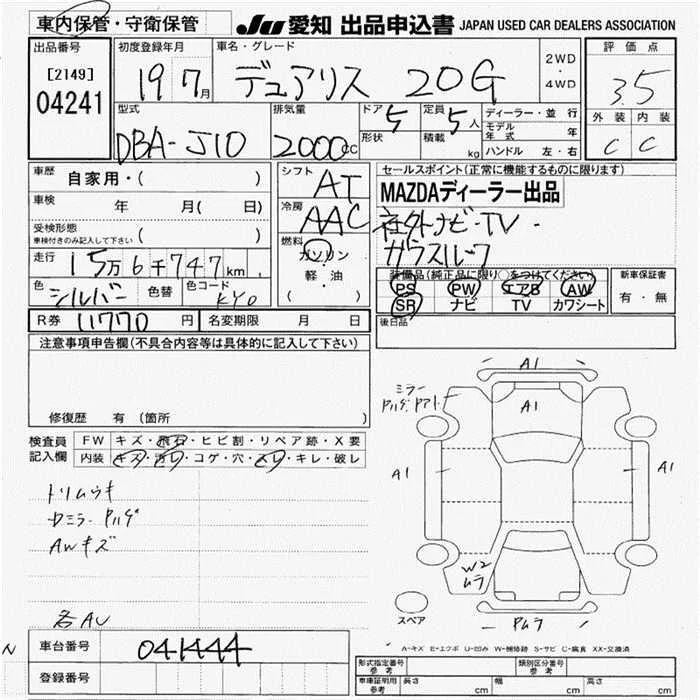 車内保管・守衛保管
JU 愛知 出品申込書 JAPAN USED CAR DEALERS ASSOCIATION
出品番号
[2149]
04241
初度登録年月
19 7月
車名・グレード
デュアリス 20G
2WD
・
4WD
評価点
3.5
外装 内装
C C
型式
DBA-J10
排気量
2000cc
ドア 5
形状
定員 5人
積載 kg
ディーラー・並行
モデル年式 年
ハンドル 左・右
車歴 自家用・( )
車検 年 月( 日)
受検形態
車検付きのみ記入して下さい ( )
走行 15万6千747km
色 シルバー 色替 色コード KY0
R券 11770 円 名変期限 月 日
シフト AT
冷房 AAC
燃料
ガソリン
・
軽・油
( )
セールスポイント(正常に機能するものに限ります)
MAZDAディーラー出品
社外ナビ・TV・
ガラスルーフ
装備品(純正品に限り○をつけてください)
PS PW エアB AW
SR ナビ TV カワシート
新車保証書
有・無
後日品
注意事項申告欄(不具合内容等は具体的に記入して下さい)
修復歴 有(箇所 )
検査員記入欄
FW キズ・飛石・ヒビ割・リペア跡・X要
内装 キズ・汚レ・コゲ・穴・スレ・キレ・破レ
トリムウキ
Dミラー Pハゲ
AWキズ
各AU
A1
ミラー
Pハゲ、Pアト
A1
A1
A1
W2
ムラ
Pムラ
スペア
A-キズ E-エクボ U-凹み W-補修跡 S-サビ C-腐食 XX-交換済
N
車台番号 041444
登録番号
形式指定番号 参考
類別区分番号 参考
車庫証明用 参考 長さ cm 幅 cm 高さ cm